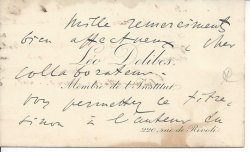 Mille remerciments
bien affectueux, cher
Léo Delibes.
collaborateur.
Membre de l'Institut
vous permettez le titre,
sinon à l'auteur du
220, rue de Rivoli